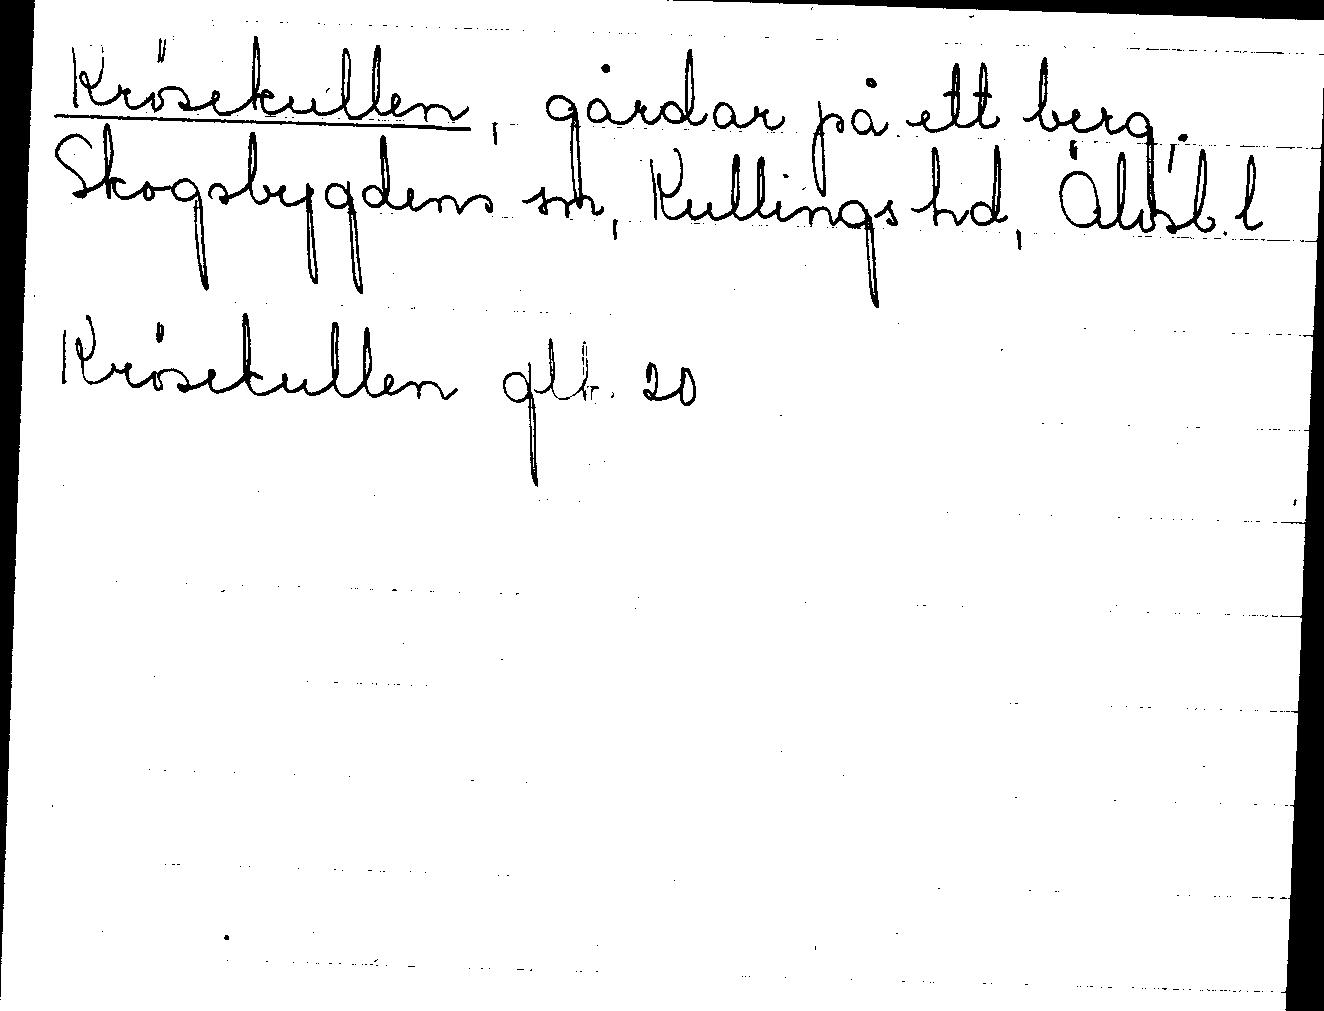 Krösekullen, gårdar på ett berg.
Skogsbygdens sn, Kullings hd, Älvsb. l
Krösekullen glk. 20